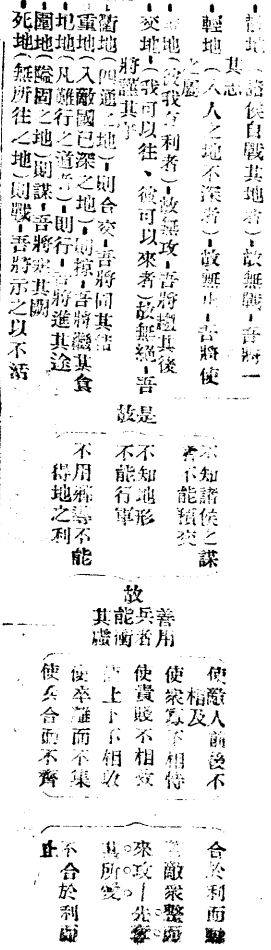 地（諸侯自戰其地者）故無戰－吾將一
其志
輕地（入人之地不深者）－故無止－吾將使
之屬
地（我有利者）－故無攻－吾將趨其後
交地－（我可以往、彼可以來者）故無絕－吾
將謹其守
衢地（四通之地）－則合交－吾將固其結
重地（入敵國已深之地）則掠－吾將繼其食
地（凡難行之道者）－則行－吾將進其途
圍地（隘固之地）則謀－吾將塞其闕
死地（無所往之地）則戰－吾將示之以不活
是故
不知諸侯之謀
者不能預交
不知地形
不能行軍
不用鄉導不能
得地之利
故
善用
兵者
能
其
使敵人前後不
相及
使衆寡不相恃
使貴賤不相救
上下不相收
使卒離而不集
使兵合而不齊
合於利而動
敵衆整而
來攻－先奪
其所愛
不合於利而
止